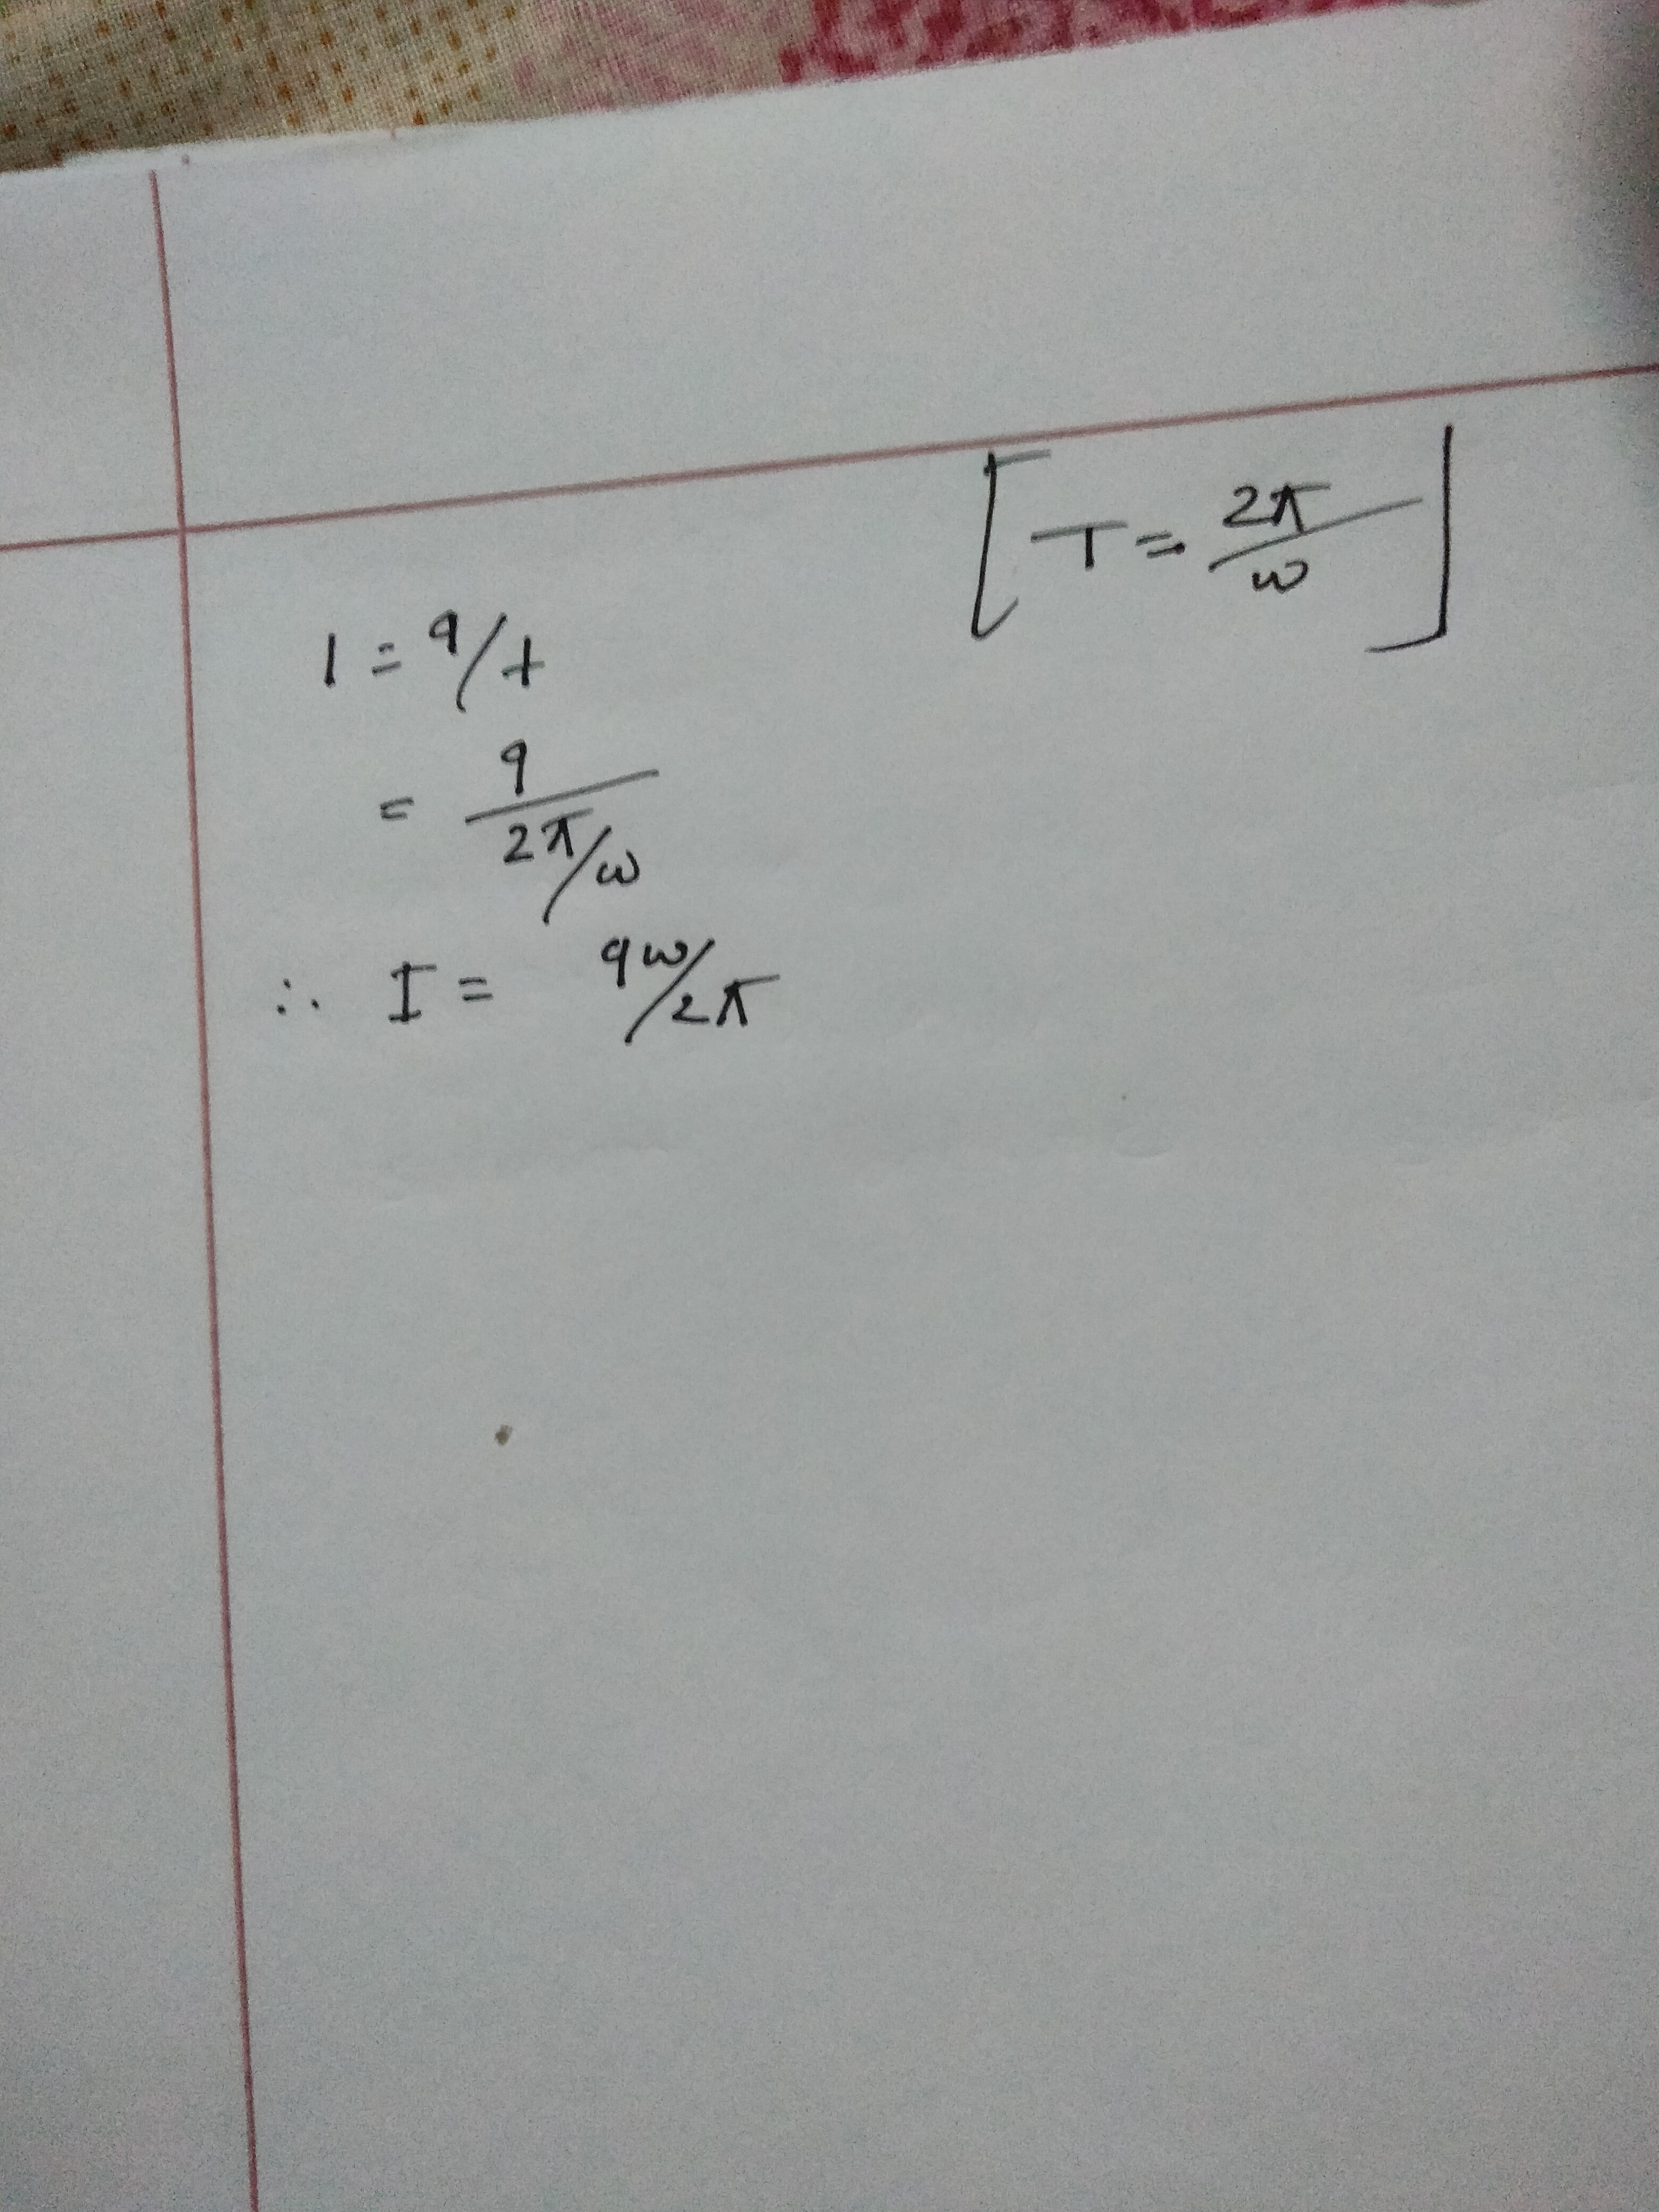 [T = 2π/ω]
I = q/t
= q/2π/ω
∴ I = qω/2π